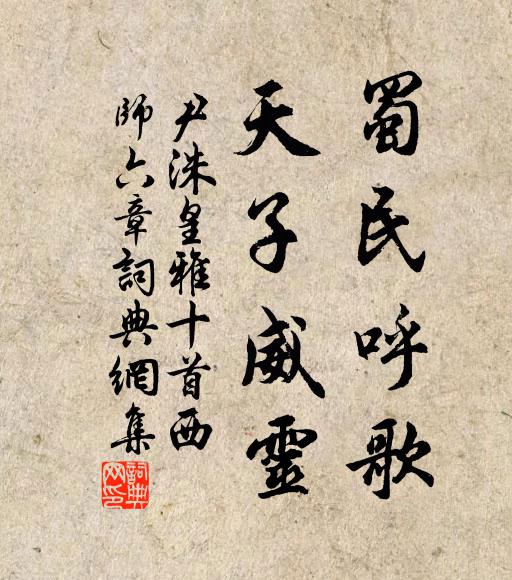 蜀民呼歌
天子威靈
尹洙皇雅十首西
師六章詞典網集
詞典網印